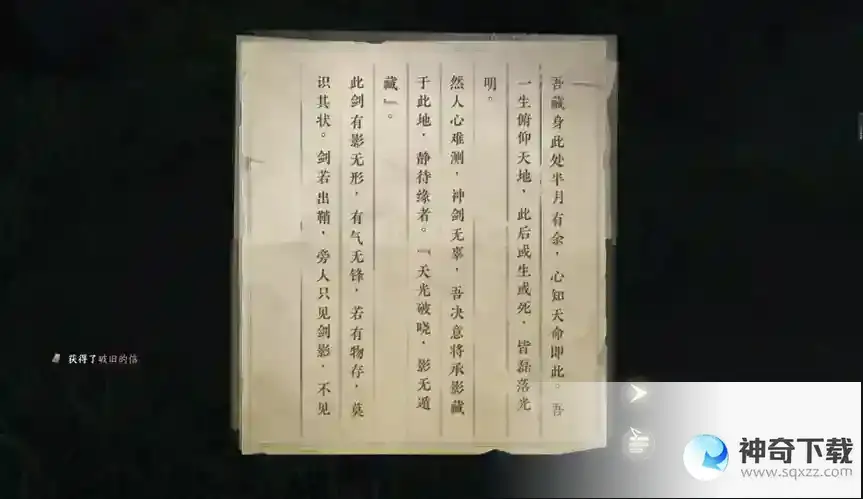 吾藏身此处半月有余，心知天命即此。吾
一生俯仰天地，此后或生或死，皆磊落光
明。
然人心难测，神剑无辜，吾决意将承影藏
于此地，静待缘者。『天光破晓，影无遁
藏』。
此剑有影无形，有气无锋，若有物存，莫
识其状。剑若出鞘，旁人只见剑影，不见
获得了破旧的信
神奇下载
www.sqxzz.com